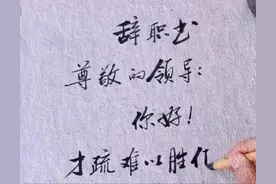 辞职书
尊敬的领导:
你好!
才疏难以胜任